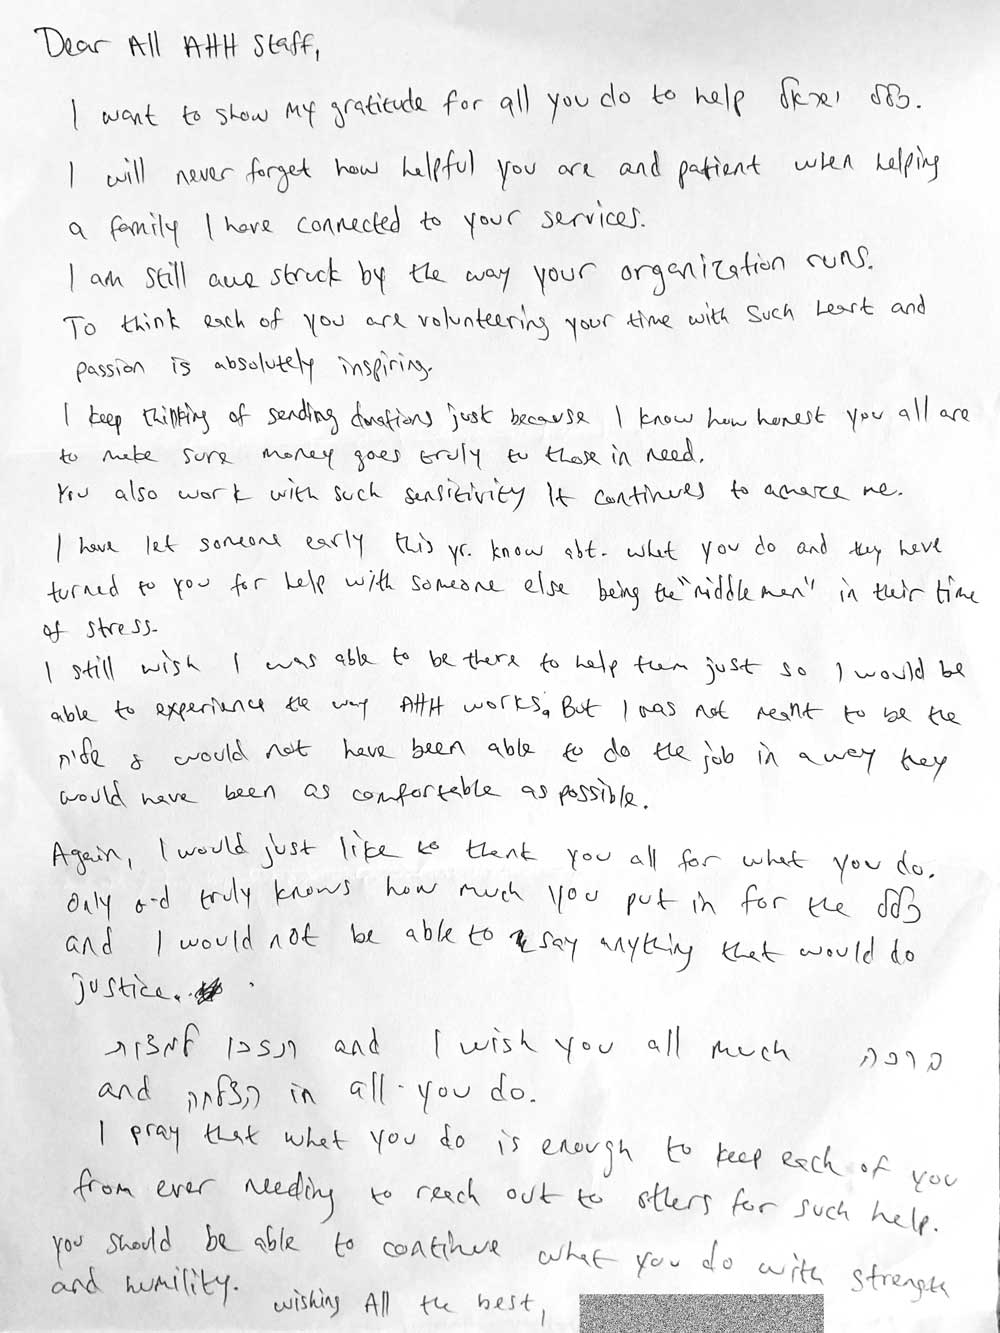 Dear All AHH Staff,
I want to show my gratitude for all you do to help כלל ישראל.
I will never forget how helpful you are and patient when helping
a family I have connected to your services.
I am still awe struck by the way your organization runs.
To think each of you are volunteering your time with such heart and
passion is absolutely inspiring.
I keep thinking of sending donations just because I know how honest you all are
to make sure money goes truly to those in need.
You also work with such sensitivity It continues to amaze me.
I have let someone early this yr. know abt. what you do and they have
turned to you for help with someone else being the "middle man" in their time
of stress.
I still wish I was able to be there to help them just so I would be
able to experience the way AHH works. But I was not meant to be the
שליח & would not have been able to do the job in a way they
would have been as comfortable as possible.
Again, I would just like to thank you all for what you do.
Only G-d truly knows how much you put in for the כלל
and I would not be able to say anything that would do
justice.
תזכו למצוות and I wish you all much ברכה
and הצלחה in all you do.
I pray that what you do is enough to keep each of you
from ever needing to reach out to others for such help.
You should be able to continue what you do with strength
and humility.
wishing All the best,